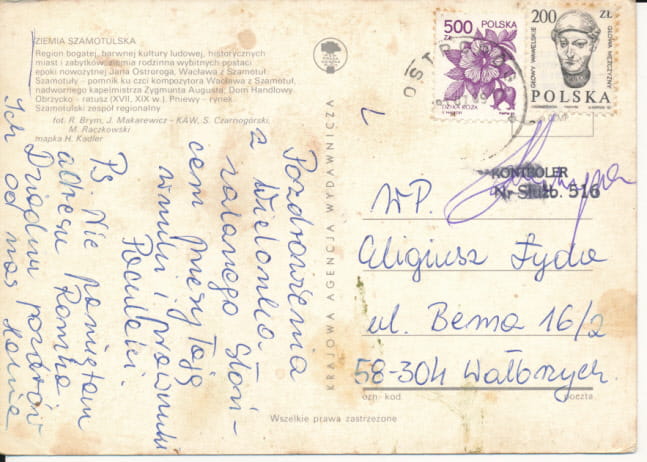 ZIEMIA SZAMOTULSKA
Region bogatej, barwnej kultury ludowej, historycznych
miast i zabytków, ziemia rodzinna wybitnych postaci
epoki nowożytnej Jana Ostroroga, Wacława z Szamotuł.
Szamotuły - pomnik ku czci kompozytora Wacława z Szamotuł,
nadwornego kapelmistrza Zygmunta Augusta, Dom Handlowy.
Obrzycko - ratusz (XVII, XIX w.) Pniewy - rynek
Szamotulski zespół regionalny
fot. R. Brym, J. Makarewicz - KAW, S. Czarnogórski,
M. Raczkowski
mapka H. Kadler
Pozdrowienia
z Wielonka
zalanego słoń-
cem przesyłają
wnuki i prawnuki
PS. Nie pamiętam
adresu Romka
Ich od nas
KRAJOWA AGENCJA WYDAWNICZA
500
ZŁ
POLSKA
DZIKA RÓŻA
200 ZŁ
GŁOWY WAWELSKIE
GŁOWA MĘŻCZYZNY
POLSKA
KONTROLER
Nr Służb. 516
WP.
Eligiusz Łyda
ul. Bema 16/2
58-304 Wałbrzych
ozn. kod.
poczta
Wszelkie prawa zastrzeżone